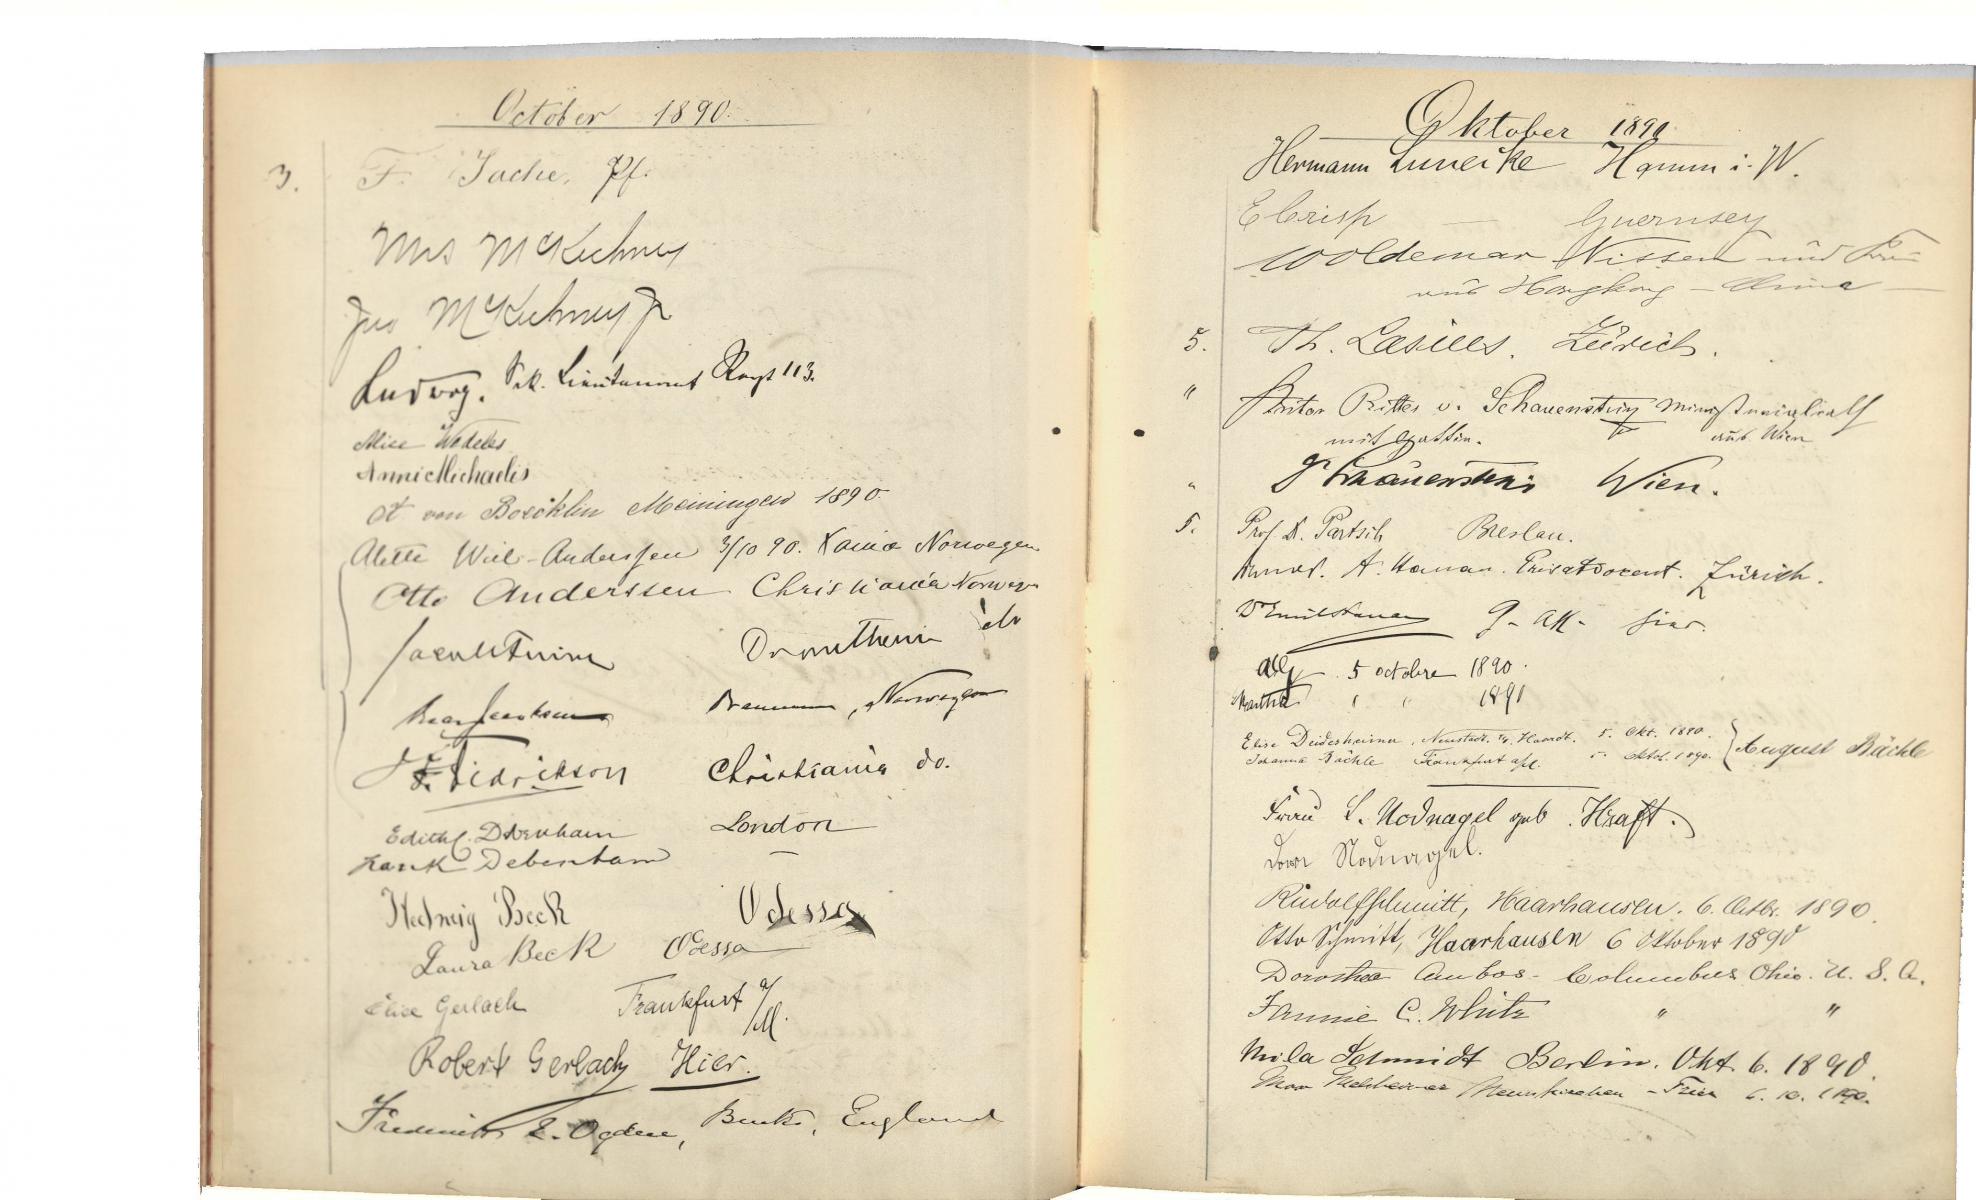 October 1890.
3. F. Sache, Pf.
Mrs McKechney
Jno McKechney Jr
Ludwig. Sek. Lieutenant Regt 113.
Alice Wedeles
Annie Michaelis
von Boecklin Meiningen 1890
Alette Wiel-Anderssen 3/10 90. Norwegen
Otto Anderssen Christiania Norweg
Drontheim do
Norwegen
Christiania do.
Edith C. Debenham London
Frank Debenham —
Hedwig Beck Odessa
Laura Beck Odessa
Elise Gerlach Frankfurt a/M.
Robert Gerlach Hier.
Frederick E. Ogden, Bucks, England
Oktober 1890
Hermann Lunecke Hamm i. W.
E Crisp — Guernsey
Woldemar Nissen und Frau
aus Hongkong — China —
5. Th. Zürich.
" Anton Ritter v. Schauenstein Ministerialrath
mit Gattin. aus Wien
" Schauenstein Wien.
5. Prof. D. Partsch Breslau.
A. Hanau. Privatdocent. Zürich.
Dr Emil Hanau
5 octobre 1890.
Martha " " 1890
Elise Deidesheimer, Neustadt a/d. Haardt. 5. Okt. 1890.
Johanna Bächle Frankfurt a/M. 5. Oktob. 1890. } August Bächle
Frau L. Nodnagel geb. Kraft.
Dora Nodnagel.
Rudolf Schmitt, Haarhausen. 6. Octbr. 1890.
Otto Schmitt, Haarhausen 6 Oktober 1890
Dorothea Ambos - Columbus Ohio. U. S. A.
Fannie C. White " "
Mila Schmidt Berlin. Okt. 6. 1890.
Neunkirchen - Trier 6. 10. 1890.